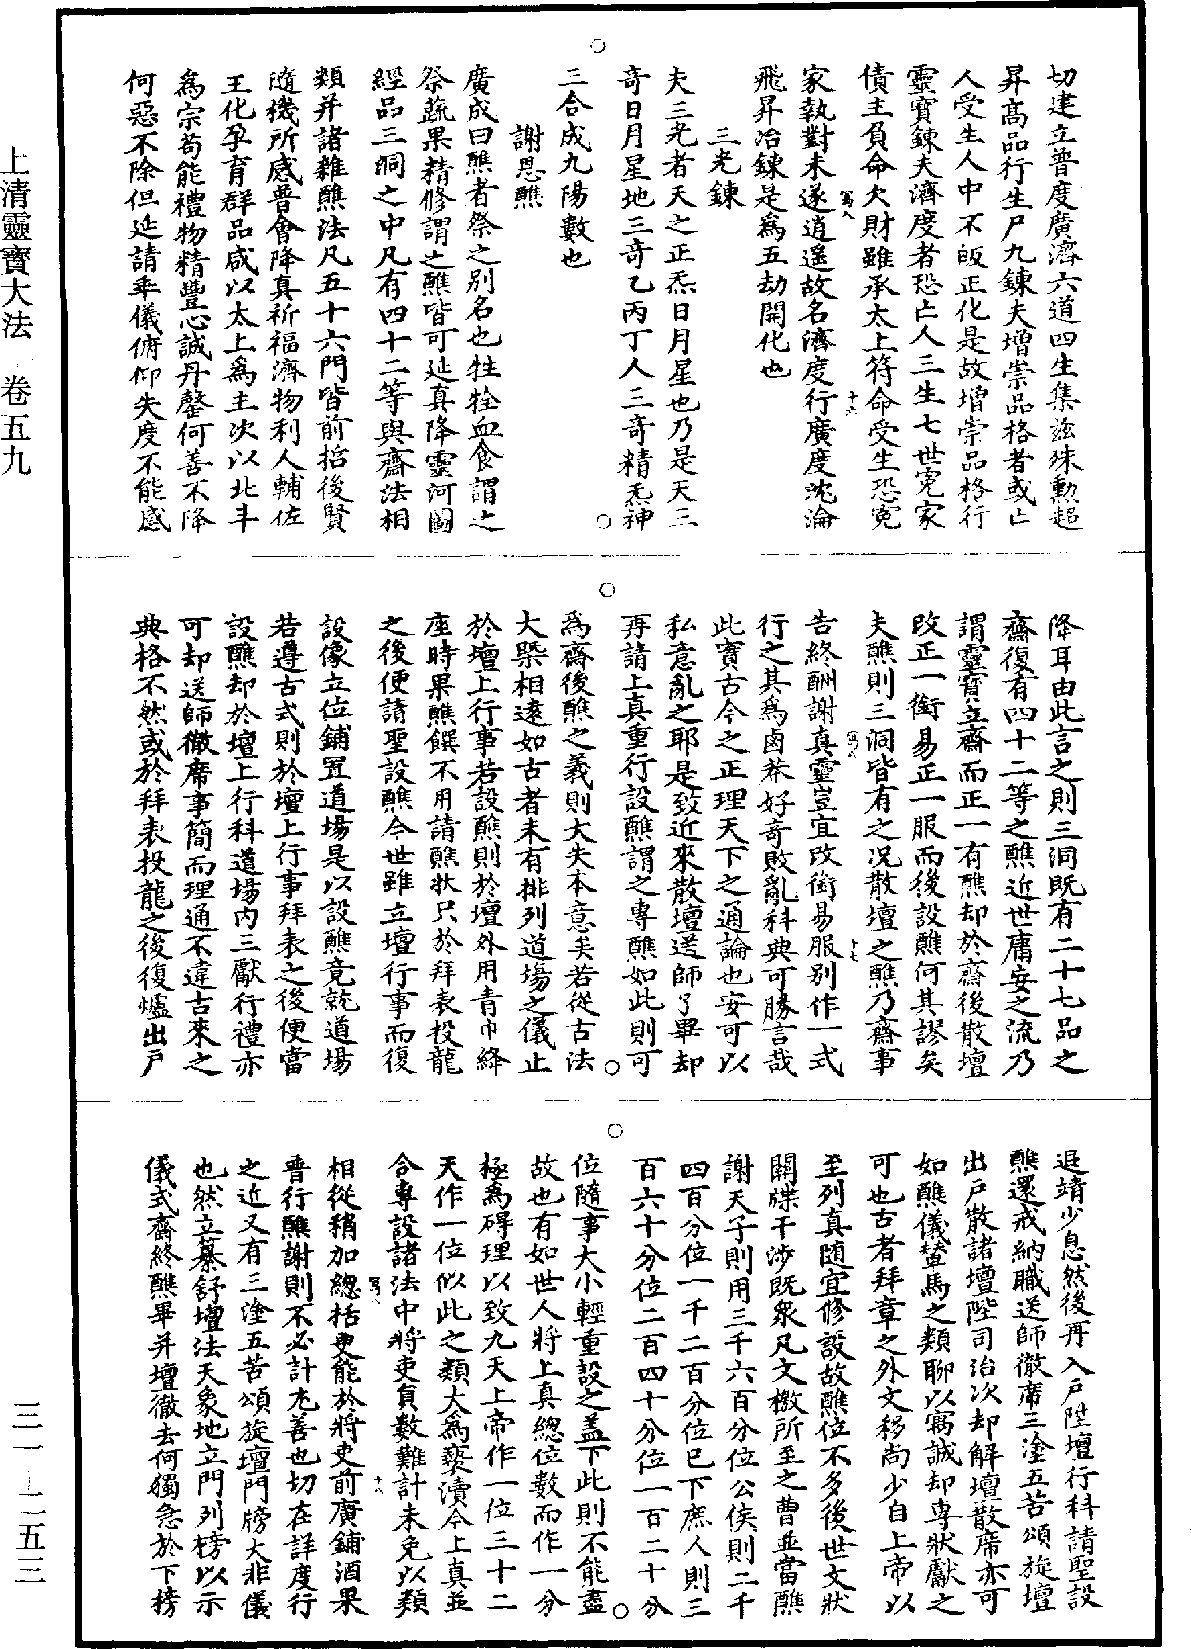 上清靈寶大法 卷五九
三一—二五三
切建立普度廣濟六道四生集茲殊勳超
昇高品行生尸九鍊夫增崇品格者或亡
人受生人中不皈正化是故增崇品格行
靈寶鍊夫濟度者恐亡人三生七世寃家
債主負命欠財雖承太上符命受生恐寃
家執對未遂逍遥故名濟度行廣度沈淪
飛昇冶鍊是爲五劫開化也
三光鍊
夫三光者天之正炁日月星也乃是天三
奇日月星地三奇乙丙丁人三奇精炁神
三合成九陽數也
謝恩醮
廣成曰醮者祭之别名也牲牷血食謂之
祭蔬果精修謂之醮皆可延真降靈河圖
經品三洞之中凡有四十二等與齋法相
類并諸雜醮法凡五十六門皆前哲後賢
隨機所感普會降真祈福濟物利人輔佐
王化孕育群品咸以太上爲主次以北斗
爲宗苟能禮物精豐心誠丹罄何善不降
何惡不除但延請乖儀俯仰失度不能感
降耳由此言之則三洞既有二十七品之
齋復有四十二等之醮近世庸妄之流乃
謂靈寶立齋而正一有醮却於齋後散壇
改正一銜易正一服而後設醮何其謬矣
夫醮則三洞皆有之况散壇之醮乃齋事
告終酬謝真靈豈宜改銜易服别作一式
行之其爲鹵莽好奇敗亂科典可勝言哉
此實古今之正理天下之通論也安可以
私意亂之耶是致近來散壇送師了畢却
再請上真重行設醮謂之專醮如此則可
爲齋後醮之義則大失本意矣若從古法
大槩相遠如古者未有排列道場之儀止
於壇上行事若設醮則於壇外用青巾絳
座時果醮饌不用請醮狀只於拜表投龍
之後便請聖設醮今世雖立壇行事而復
設像立位鋪置道場是以設醮竟就道場
若遵古式則於壇上行事拜表之後便當
設醮却於壇上行科道場内三獻行禮亦
可却送師徹席事簡而理通不違古來之
典格不然或於拜表投龍之後復爐出戶
退靖少息然後再入戶陞壇行科請聖設
醮還戒納職送師徹席三塗五苦頌旋壇
出戶散諸壇陛司治次却解壇散席亦可
如醮儀蠻馬之類聊以寫誠却專狀獻之
可也古者拜章之外文移尚少自上帝以
至列真隨宜修設故醮位不多後世文狀
關牒干涉既衆凡文檄所至之曹並當醮
謝天子則用三千六百分位公侯則二千
四百分位一千二百分位巳下庶人則三
百六十分位二百四十分位一百二十分
位隨事大小輕重設之蓋下此則不能盡
故也有如世人將上真總位數而作一分
極爲碍理以致九天上帝作一位三十二
天作一位似此之類大爲褻瀆今上真並
合專設諸法中將吏員數難計未免以類
相從稍加總括更能於將吏前廣鋪酒果
普行醮謝則不必計尤善也切在詳度行
之近又有三塗五苦頌旋壇門牓大非儀
也然立纂舒壇法天象地立門列榜以示
儀式齋終醮畢并壇徹去何獨急於下榜